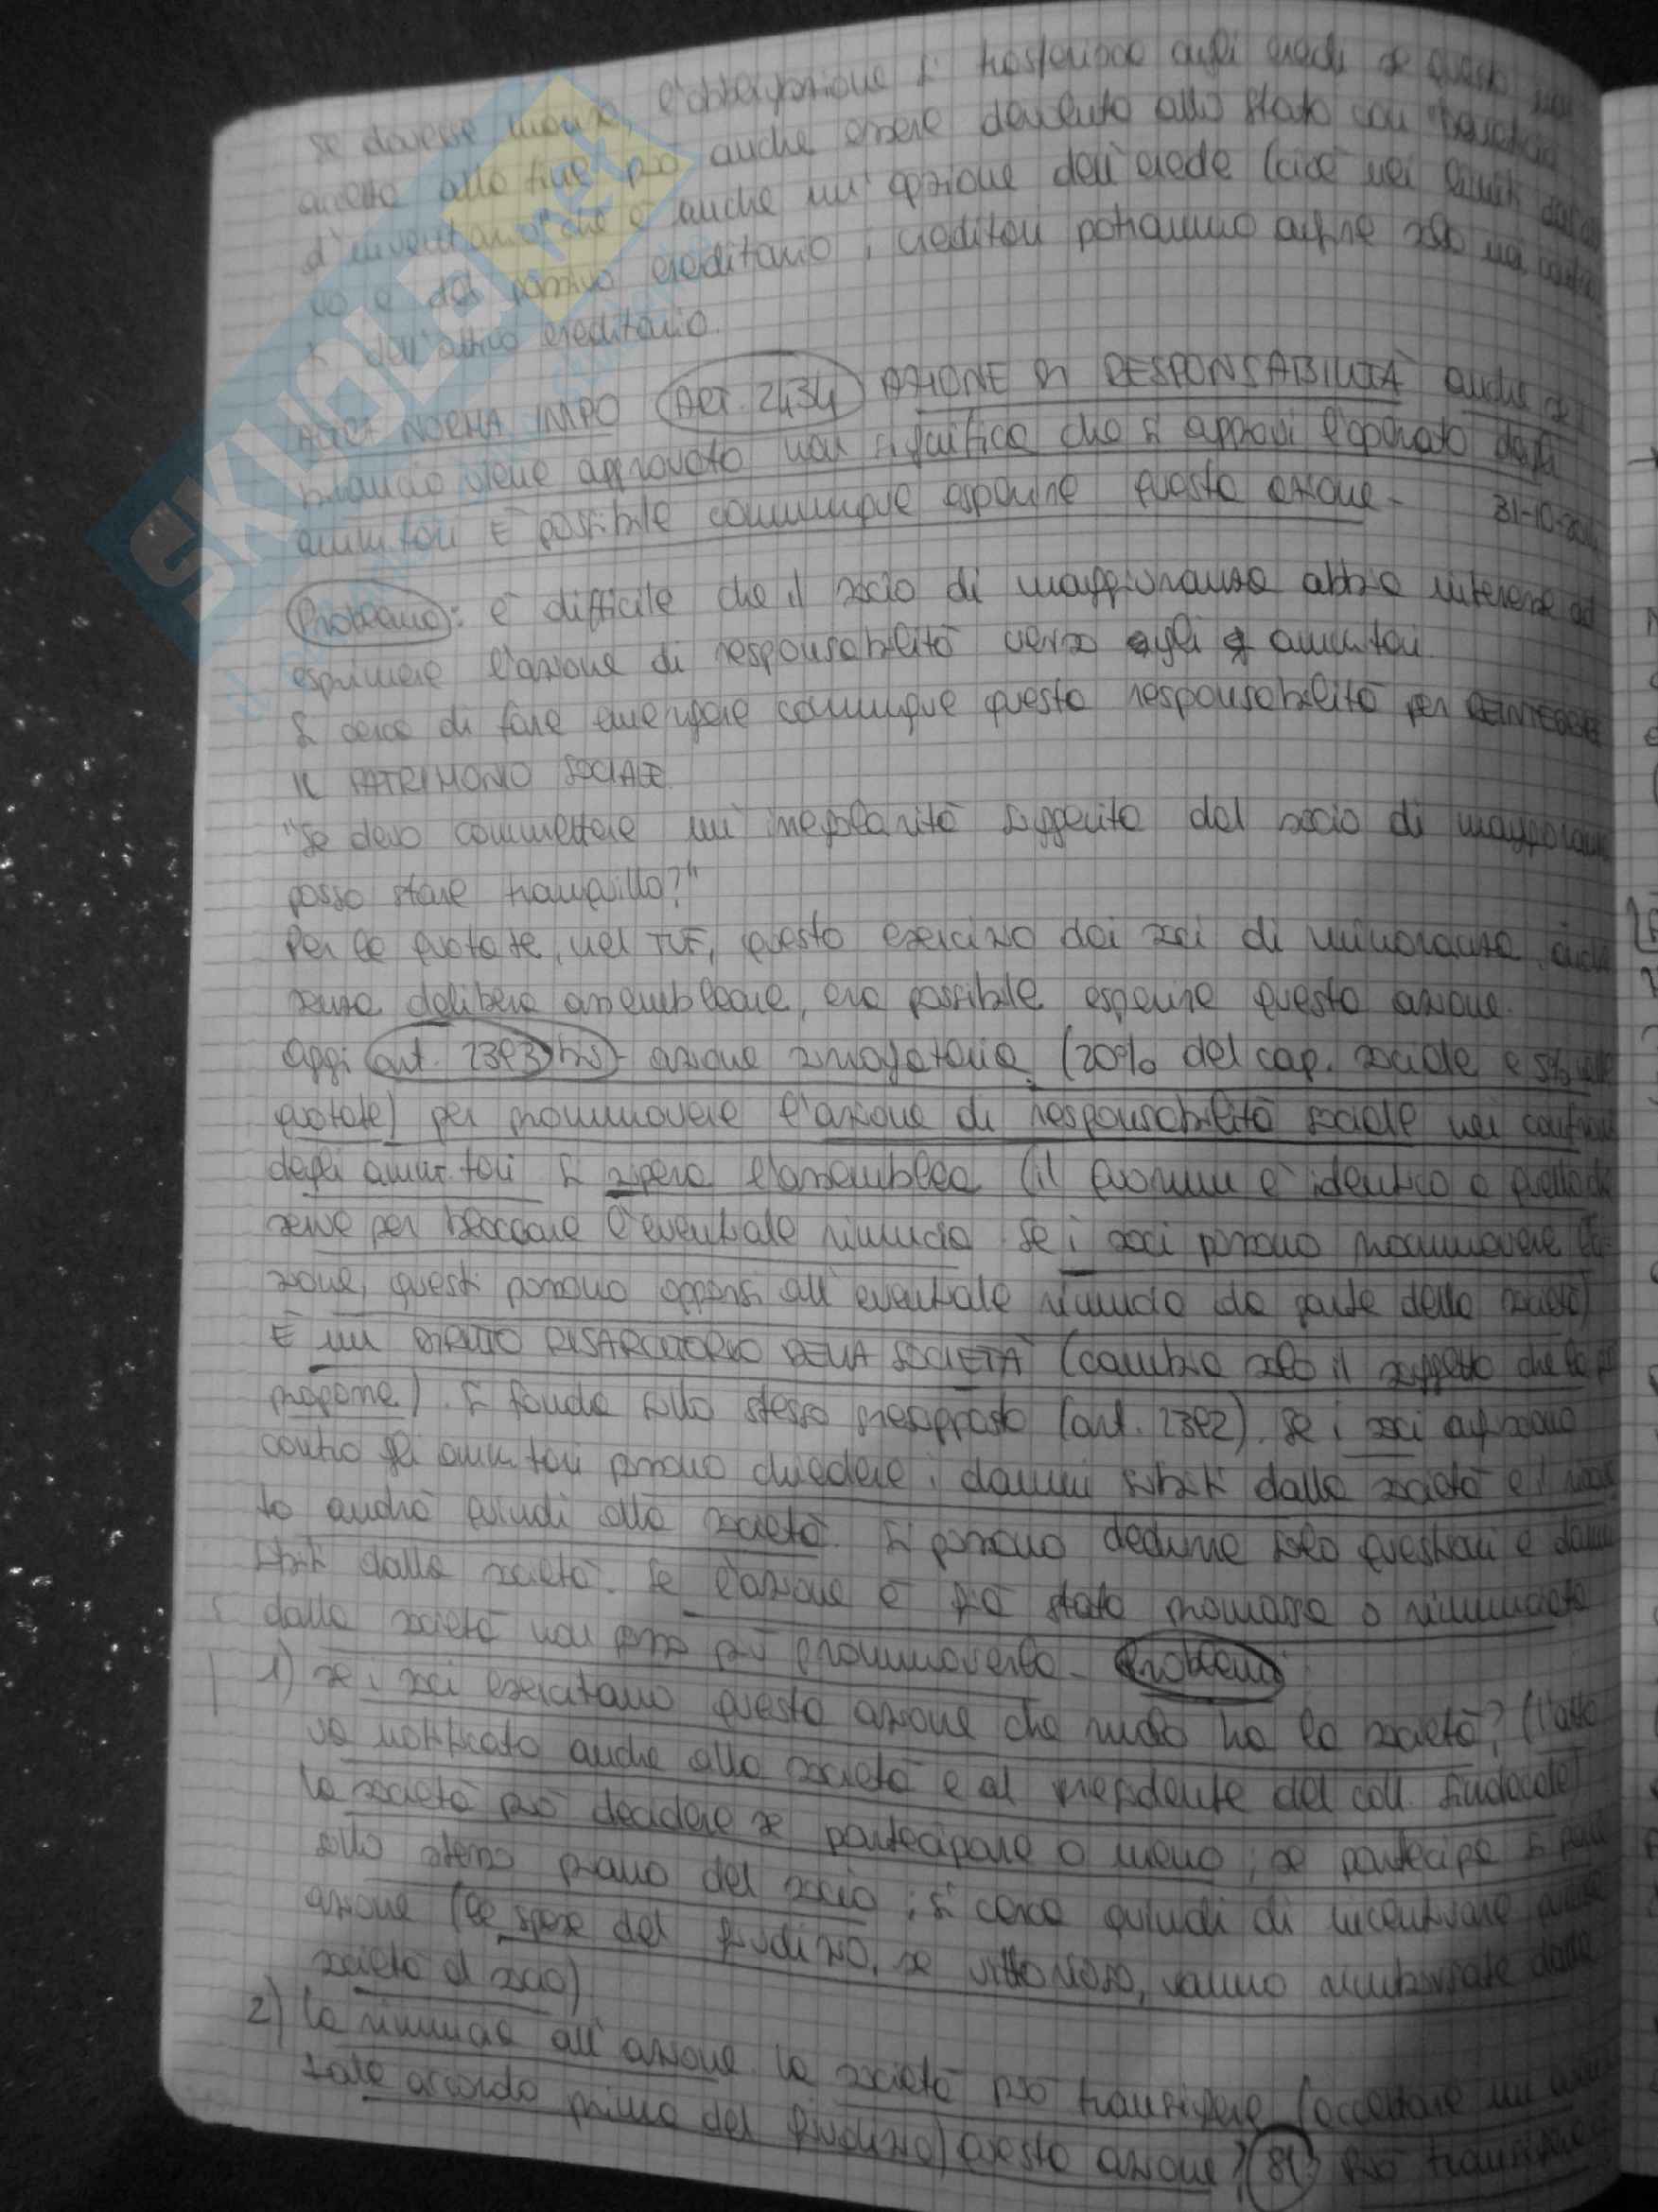 se dovesse morire, l'obbligazione si trasferisce agli eredi se questo non
accetta alla fine può anche essere devoluto allo stato con "beneficio
d'inventario" che è anche un'opzione dell'erede (cioè nei limiti
e del passivo ereditario i creditori potranno agire solo nei
dell'attivo ereditario.
ALTRA NORMA IMPO ART. 2434 AZIONE DI RESPONSABILITÀ anche se il
bilancio viene approvato non significa che si approvi l'operato degli
amm.tori È possibile comunque esperire questa azione-
31-10-
Problema: è difficile che il socio di maggioranza abbia interesse ad
esprimere l'azione di responsabilità verso gli amm.tori.
Si cerca di fare emergere comunque questa responsabilità per REINTEGRARE
IL PATRIMONIO SOCIALE.
"Se devo commettere un'irregolarità suggerita dal socio di maggioranza
posso stare tranquillo?"
Per le quotate, nel TUF, questo esercizio dei soci di minoranza, anche
senza delibera assembleare, era possibile esperire questa azione.
Oggi art. 2393 bis - azione surrogatoria (20% del cap. sociale e 5%
quotate) per promuovere l'azione di responsabilità sociale nei confronti
degli amm.tori Si supera l'assemblea (il quorum è identico a quello che
serve per bloccare l'eventuale rinuncia. Se i soci possono promuovere l'a-
zione, questi possono opporsi all'eventuale rinuncia da parte della società)
È un DIRITTO RISARCITORIO DELLA SOCIETÀ (cambia solo il soggetto che la
propone). Si fonda sullo stesso presupposto (art. 2392). Se i soci agiscono
contro gli amm.tori possono chiedere i danni subiti dalla società e il
to andrà quindi alla società. Si possono dedurre solo questioni e danni
subiti dalla società. Se l'azione è già stata promossa o rinunciata
dalla società non posso più promuoverla- Problemi:
1) se i soci esercitano questa azione che ruolo ha la società? (l'atto
va notificato anche alla società e al presidente del coll. sindacale)
la società può decidere se partecipare o meno; se partecipa si pone
sullo stesso piano del socio; si cerca quindi di incentivare questa
azione (le spese del giudizio, se vittorioso, vanno rimborsate dalla
società al socio)
2) la rinuncia all'azione. la società può transigere (accettare un
tale accordo prima del giudizio) questa azione? Sì, può transigere